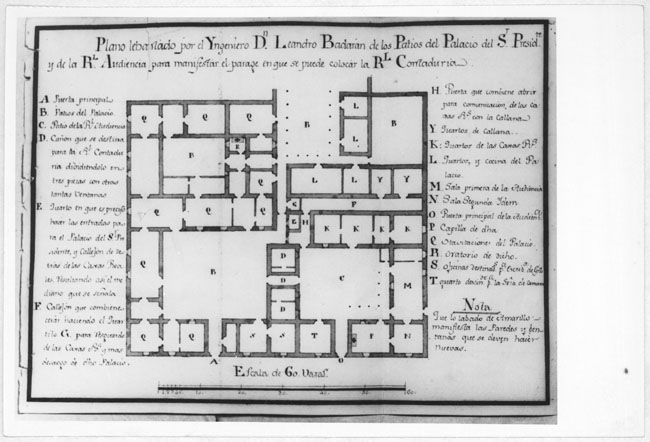 Plano lebantado por el Yngeniero Dn. Leandro Badaran de los Patios del Palacio del Sr. Presid.te
y de la Rl. Audiencia, para manifestar el parage en que se puede colocar la Rl. Contaduria.
A Puerta principal
B. Patios del Palacio
C. Patio de la Rl. Audiencia
D. Cañon que se destina
para la Rl. Contadu
ria dibidiendolo en
tres piezas con otras
tantas Ventanas
E. Cuarto en que es preciso
hacer las entradas pa
ra el Palacio del Sr. Pre
sidente, y Callejon de de
tras de las Caxas Rea
les, Mediando asi el me
diano que se señala
F. Callejon que combiene
cerrar haciendo el Quar
tito G. para Resguardo
de las Caxas Rs. y mas
desaogo de dho Palacio.
H Puerta que combiene abrir
para comunicacion, de las ca
xas Rs. con la Callana
Y Quartos de Callana
K. Quartos de las Caxas Rs.
L Quartos, y cocina del Pa
lacio.
M. Sala primera de la Audiencia
N Sala Segunda Ydem
O. Puerta principal de la Audien.a
P. Capilla de dha
Q Havitaciones del Palacio
R. Oratorio de dicho.
S. oficinas destinas pa.
T. quarto
Nota
Que lo labado de Amarillo
manifiesta las Paredes y ben
tanas que se deven hacer
nuevas.
Q Q Q
B
L
L
B
R
Q
Q
B
Q Q
L L Y Y
F
E
G H
K K K K
Q Q Q
D
D
D
Q B C M
Q Q Q S S T P N
A O
Escala de 60 Varas.